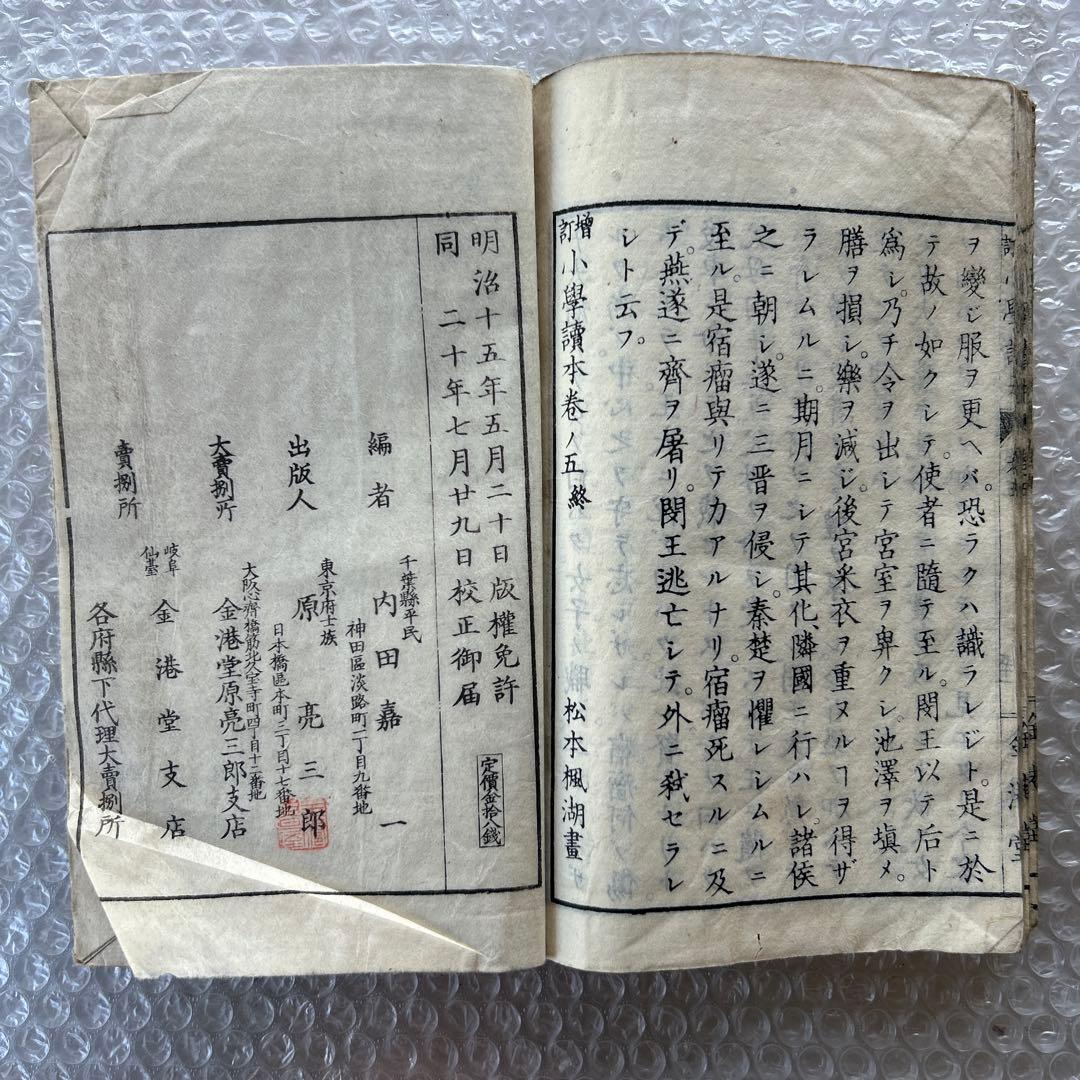 ヲ變ジ服ヲ更ヘバ。恐ラクハ識ラレジト。是ニ於
テ故ノ如クシテ。使者ニ隨テ至ル。閔王以テ后ト
爲シ。乃チ令ヲ出シテ宮室ヲ卑クシ。池澤ヲ塡メ。
膳ヲ損シ。樂ヲ減ジ。後宮采衣ヲ重ヌルヿヲ得ザ
ラレムルニ。期月ニシテ其化、隣國ニ行ハレ。諸侯
之ニ朝シ。遂ニ三晋ヲ侵シ。秦楚ヲ懼レシムルニ
至ル。是宿瘤與リテ力アルナリ。宿瘤死スルニ及
デ。燕遂ニ齊ヲ屠リ。閔王逃亡シテ。外ニ弑セラレ
シト云フ。
增訂小學讀本卷ノ五終 松本楓湖畫
明治十五年五月二十日版權免許
同 二十年七月廿九日校正御届
定價金拾八錢
千葉縣平民
編者 內田嘉一
神田區淡路町二丁目九番地
東京府士族
出版人 原亮三郎
日本橋區本町三丁目十七番地
大阪心齋橋筋北久宝寺町四丁目十二番地
大賣捌所 金港堂原亮三郎支店
岐阜
仙臺
賣捌所 金港堂支店
各府縣下代理大賣捌所